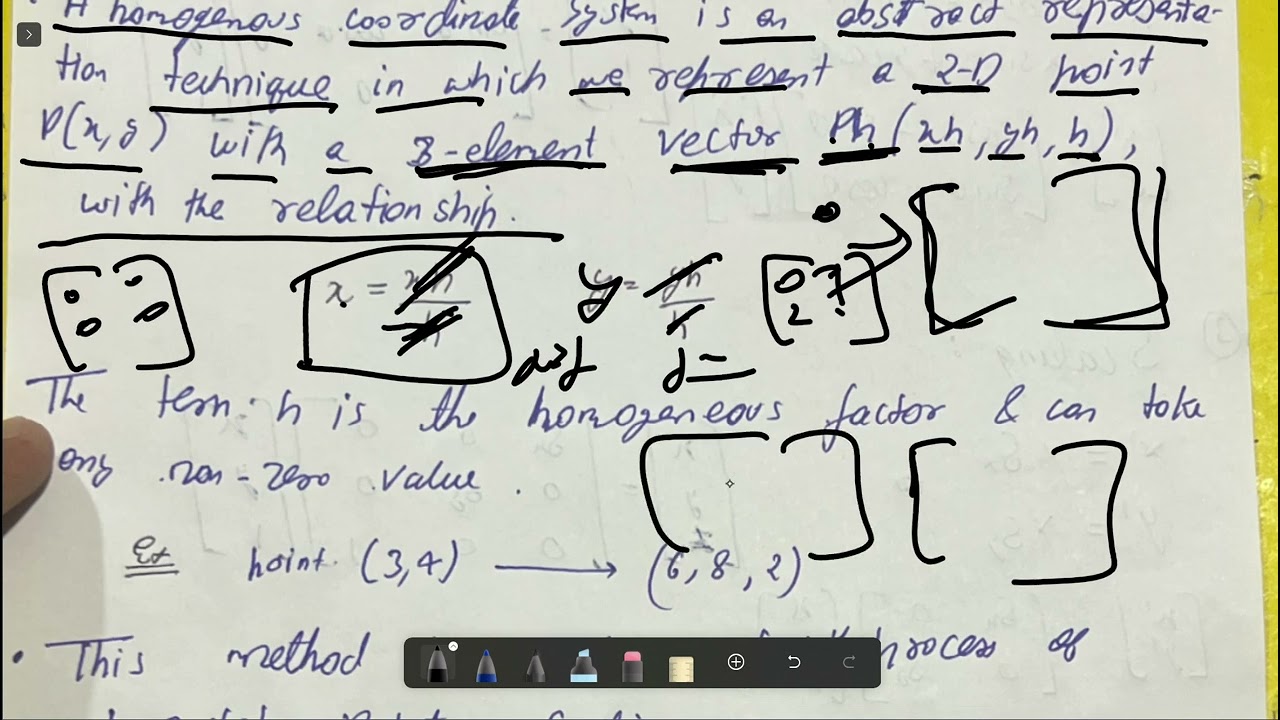 A homogenous coordinate system is an abstract representa-
tion technique in which we represent a 2-D point
P(x,y) with a 3-element vector Ph(xh, yh, h),
with the relationship.
x = xh/h y = yh/h
y =
The term h is the homogeneous factor & can take
any non-zero value.
Ex point (3,4) → (6,8,2)
• This method process of